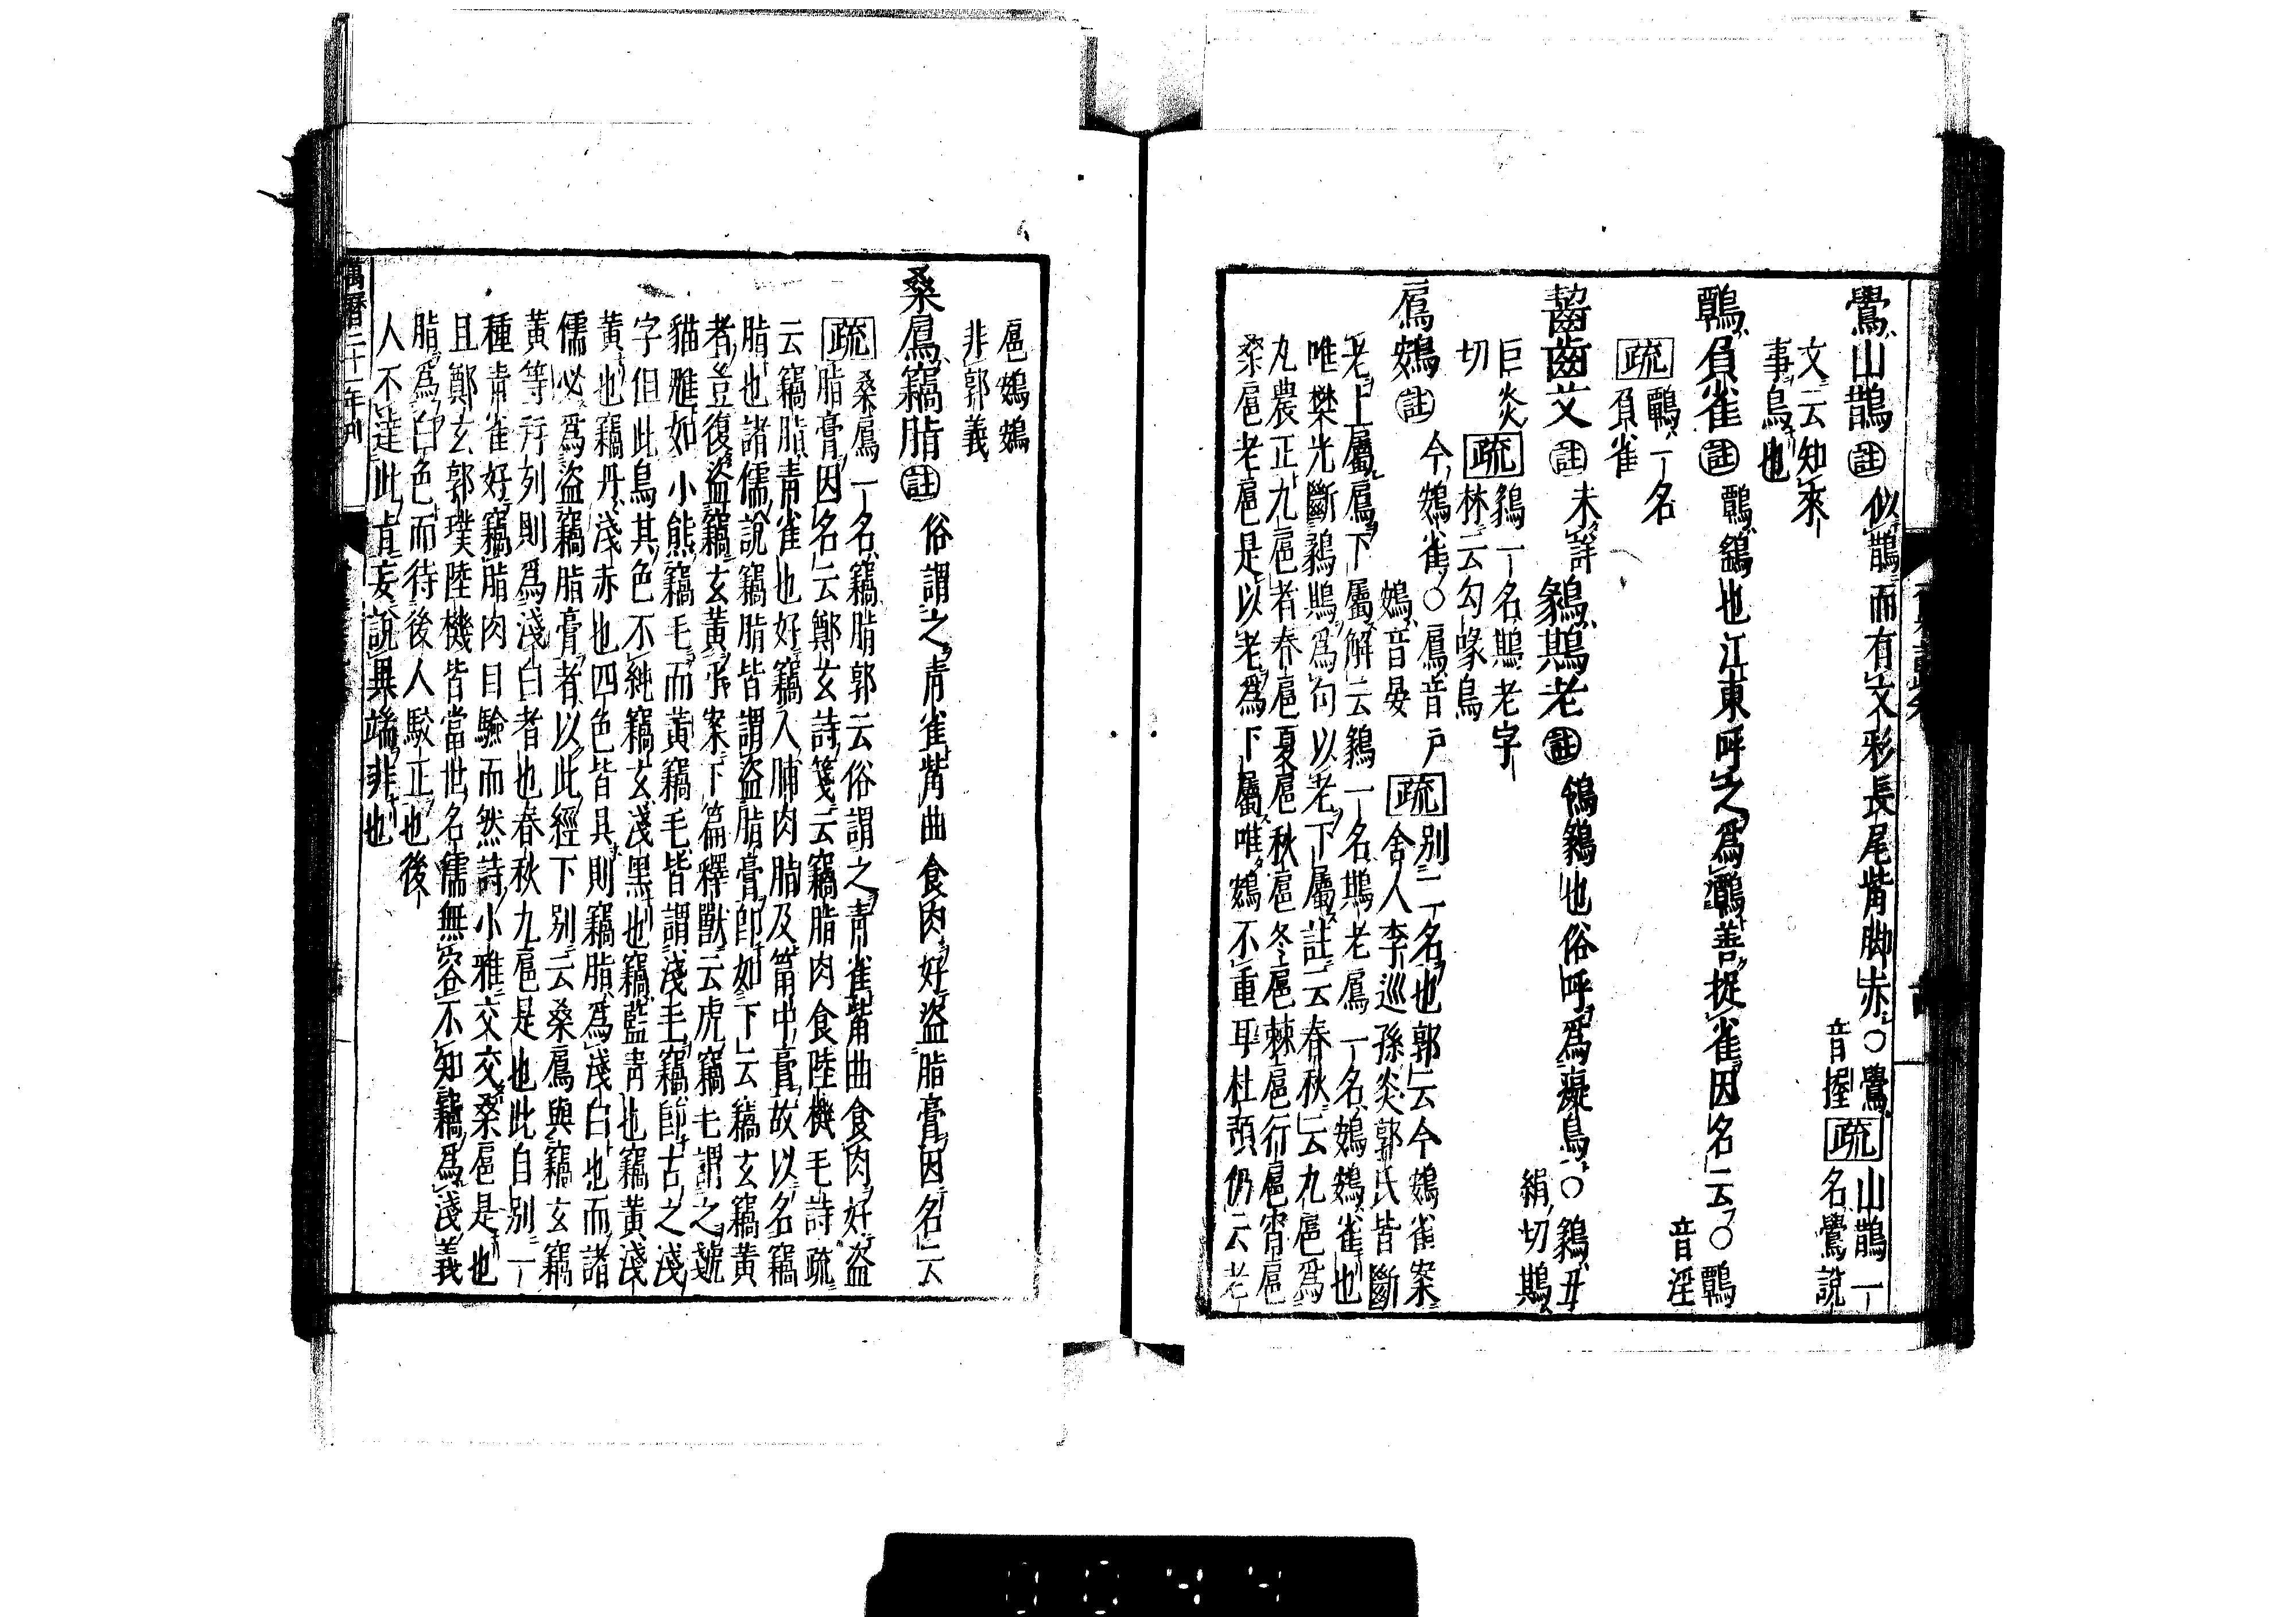 鷽山鵲 註 似鵲而有文彩長尾觜脚赤○鷽音握 疏 山鵲一名鷽說
文云知來事鳥也
鷣負雀 註 鷣鷂也江東呼之為鷣善捉雀因名云○鷣音淫
疏 鷣一名負雀
齧齒艾 註 未詳 鶨鶀老 註 鳹鶨也俗呼為癡鳥○鶨丑絹切鶀
巨炎切 疏 鶨一名鶀老字林云勾喙鳥
鳸鴳 註 今鴳雀○鳸音戶鴳音晏 疏 別二名也郭云今鴳雀案舍人李巡孫炎郭氏皆斷
老上屬鳸下屬解云鶨一名鶀老鳸一名鴳鴳雀也
唯樊光斷鶨鶀為句以老下屬註云春秋云九扈為
九農正九扈者春扈夏扈秋扈冬扈棘扈行扈宵扈
桑扈老扈是以老為下屬唯鴳不重耳杜預仍云老
扈鴳鴳
非郭義
桑鳸竊脂 註 俗謂之青雀觜曲食肉好盜脂膏因名云
疏 桑鳸一名竊脂郭云俗謂之青雀觜曲食肉好盜
脂膏因名云鄭玄詩箋云竊脂肉食陸機毛詩疏
云竊脂青雀也好竊人脯肉脂及筩中膏故以名竊
脂也諸儒說竊脂皆謂盜脂膏即如下云竊玄竊黃
者豈復盜竊玄黃乎案下篇釋獸云虎竊毛謂之虦
貓魋如小熊竊毛而黃竊毛皆謂淺毛竊即古之淺
字但此鳥其色不純竊玄淺黑也竊藍青也竊黃淺
黃也竊丹淺赤也四色皆具則竊脂為淺白也而諸
儒必為盜竊脂膏者以此經下別云桑鳸與竊玄竊
黃等并列則為淺白者也春秋九扈是也此自別一
種青雀好竊脂肉目驗而然詩小雅交交桑扈是也
且鄭玄郭璞陸機皆當世名儒無容不知竊為淺義
脂為白色而待後人駮正也後
人不達此旨妄說異端非也
萬曆二十一年刊